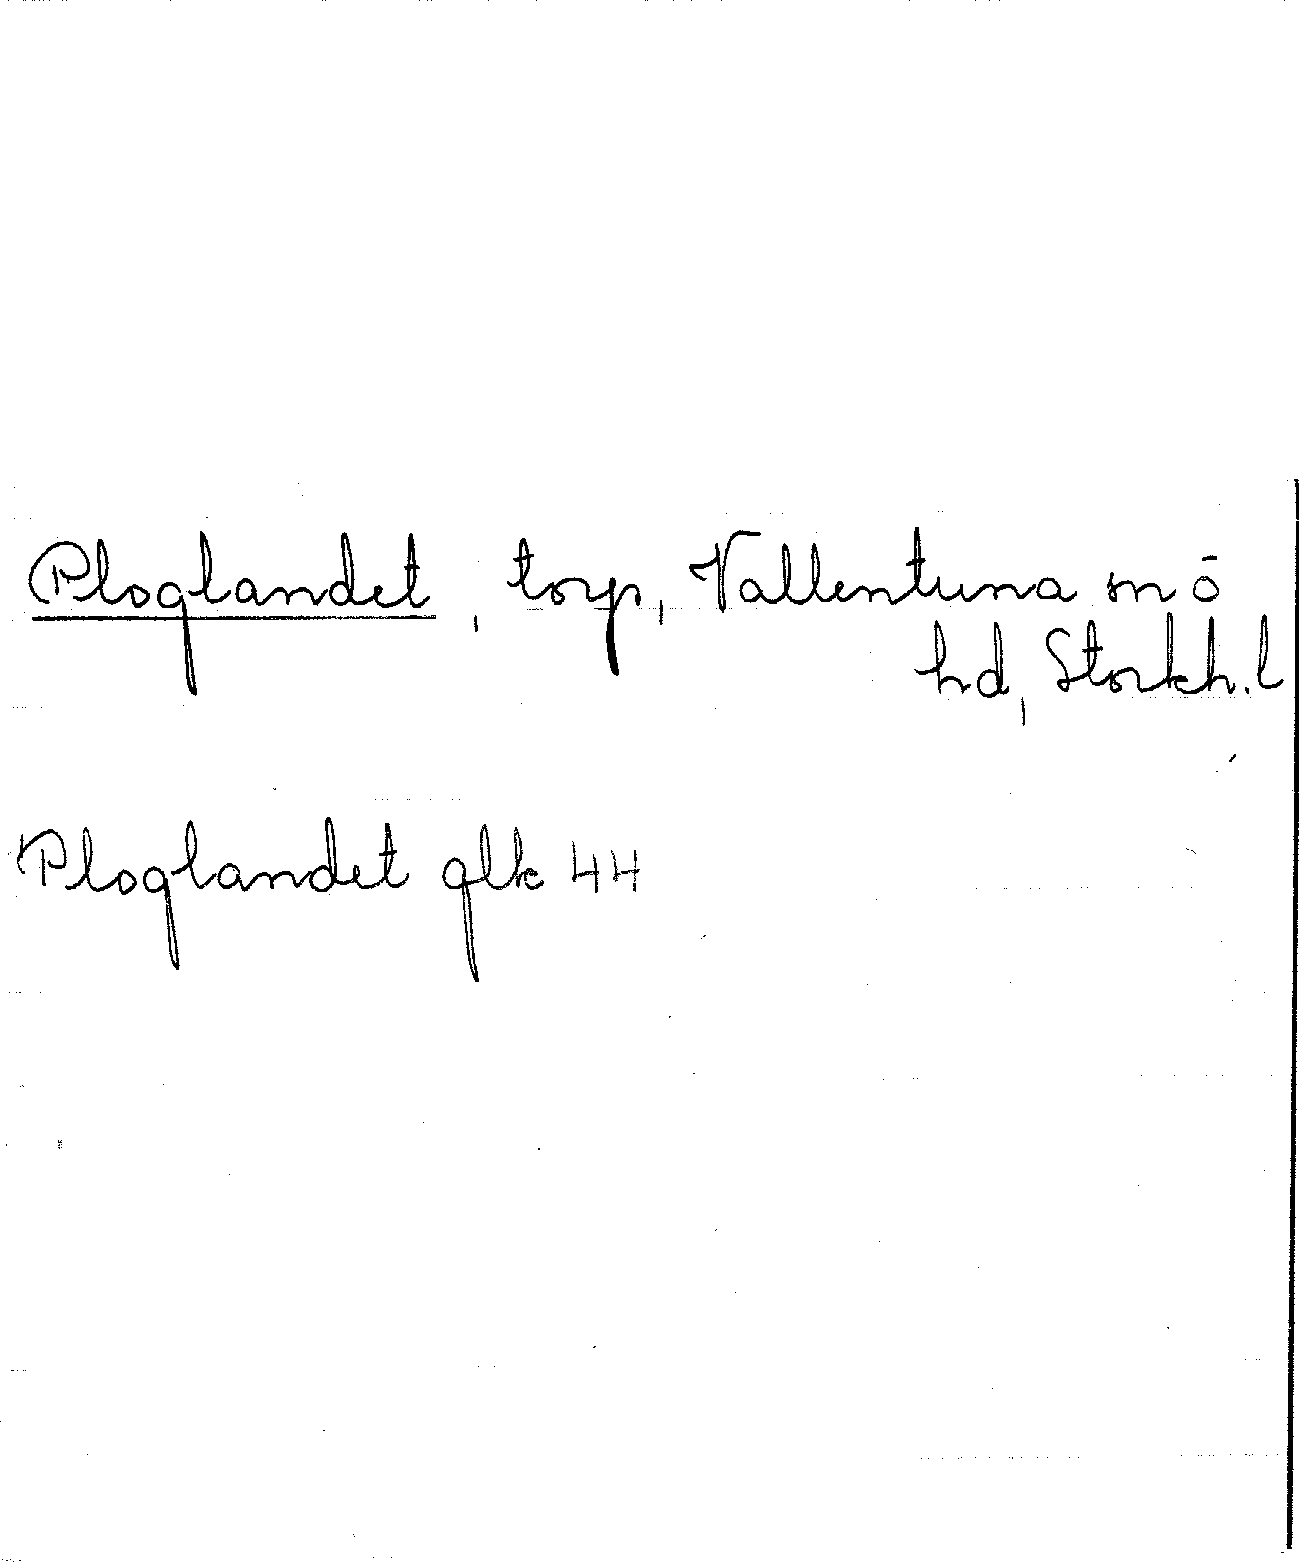 Ploglandet, torp, Vallentuna sn o
hd, Stockh. l
Ploglandet glk 44